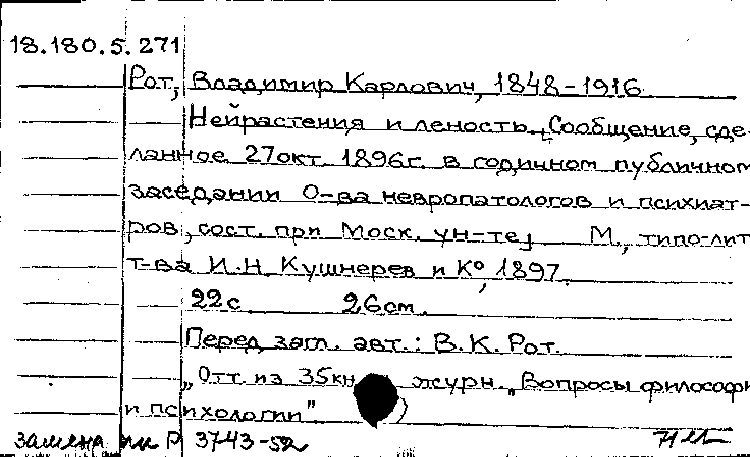 18.180.5.271
Рот, Владимир Карлович, 1848-1916
Нейрастения и леность. Сообщение, сде-
ланное 27 окт. 1896г. в годичном публичном
заседании О-ва невропатологов и психиат-
ров, сост. при Моск. ун-те] М., типо-лит
т-ва И.Н. Кушнерев и К°, 1897.
22с. 26см.
Перед загл. авт.: В.К. Рот.
"Отт. из 35кн. журн. "Вопросы философи
и психологии"
замена Р 3743-52